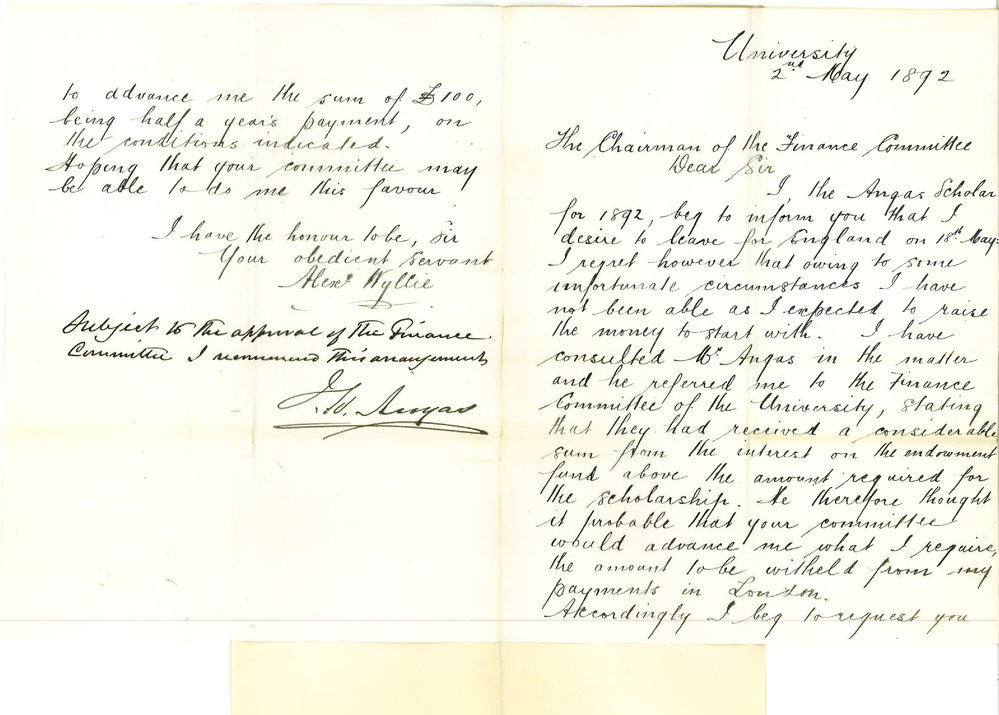 University
2nd May 1892
The Chairman of the Finance Committee
Dear Sir
I, the Angas Scholar
for 1892, beg to inform you that I
desire to leave for England on 18th May.
I regret however that owing to some
unfortunate circumstances I have
not been able as I expected to raise
the money to start with. I have
consulted Mr. Angas in the matter
and he referred me to the Finance
Committee of the University, stating
that they had received a considerable
sum from the interest on the endowment
fund above the amount required for
the scholarship. He therefore thought
it probable that your committee
would advance me what I require,
the amount to be witheld from my
payments in London.
Accordingly I beg to request you
to advance me the sum of £100,
being half a year's payment, on
the conditions indicated.
Hoping that your committee may
be able to do me this favour
I have the honour to be, Sir
Your obedient servant
Alexr Wyllie
Subject to the approval of the Finance
Committee I recommend this arrangement
J. H. Angas